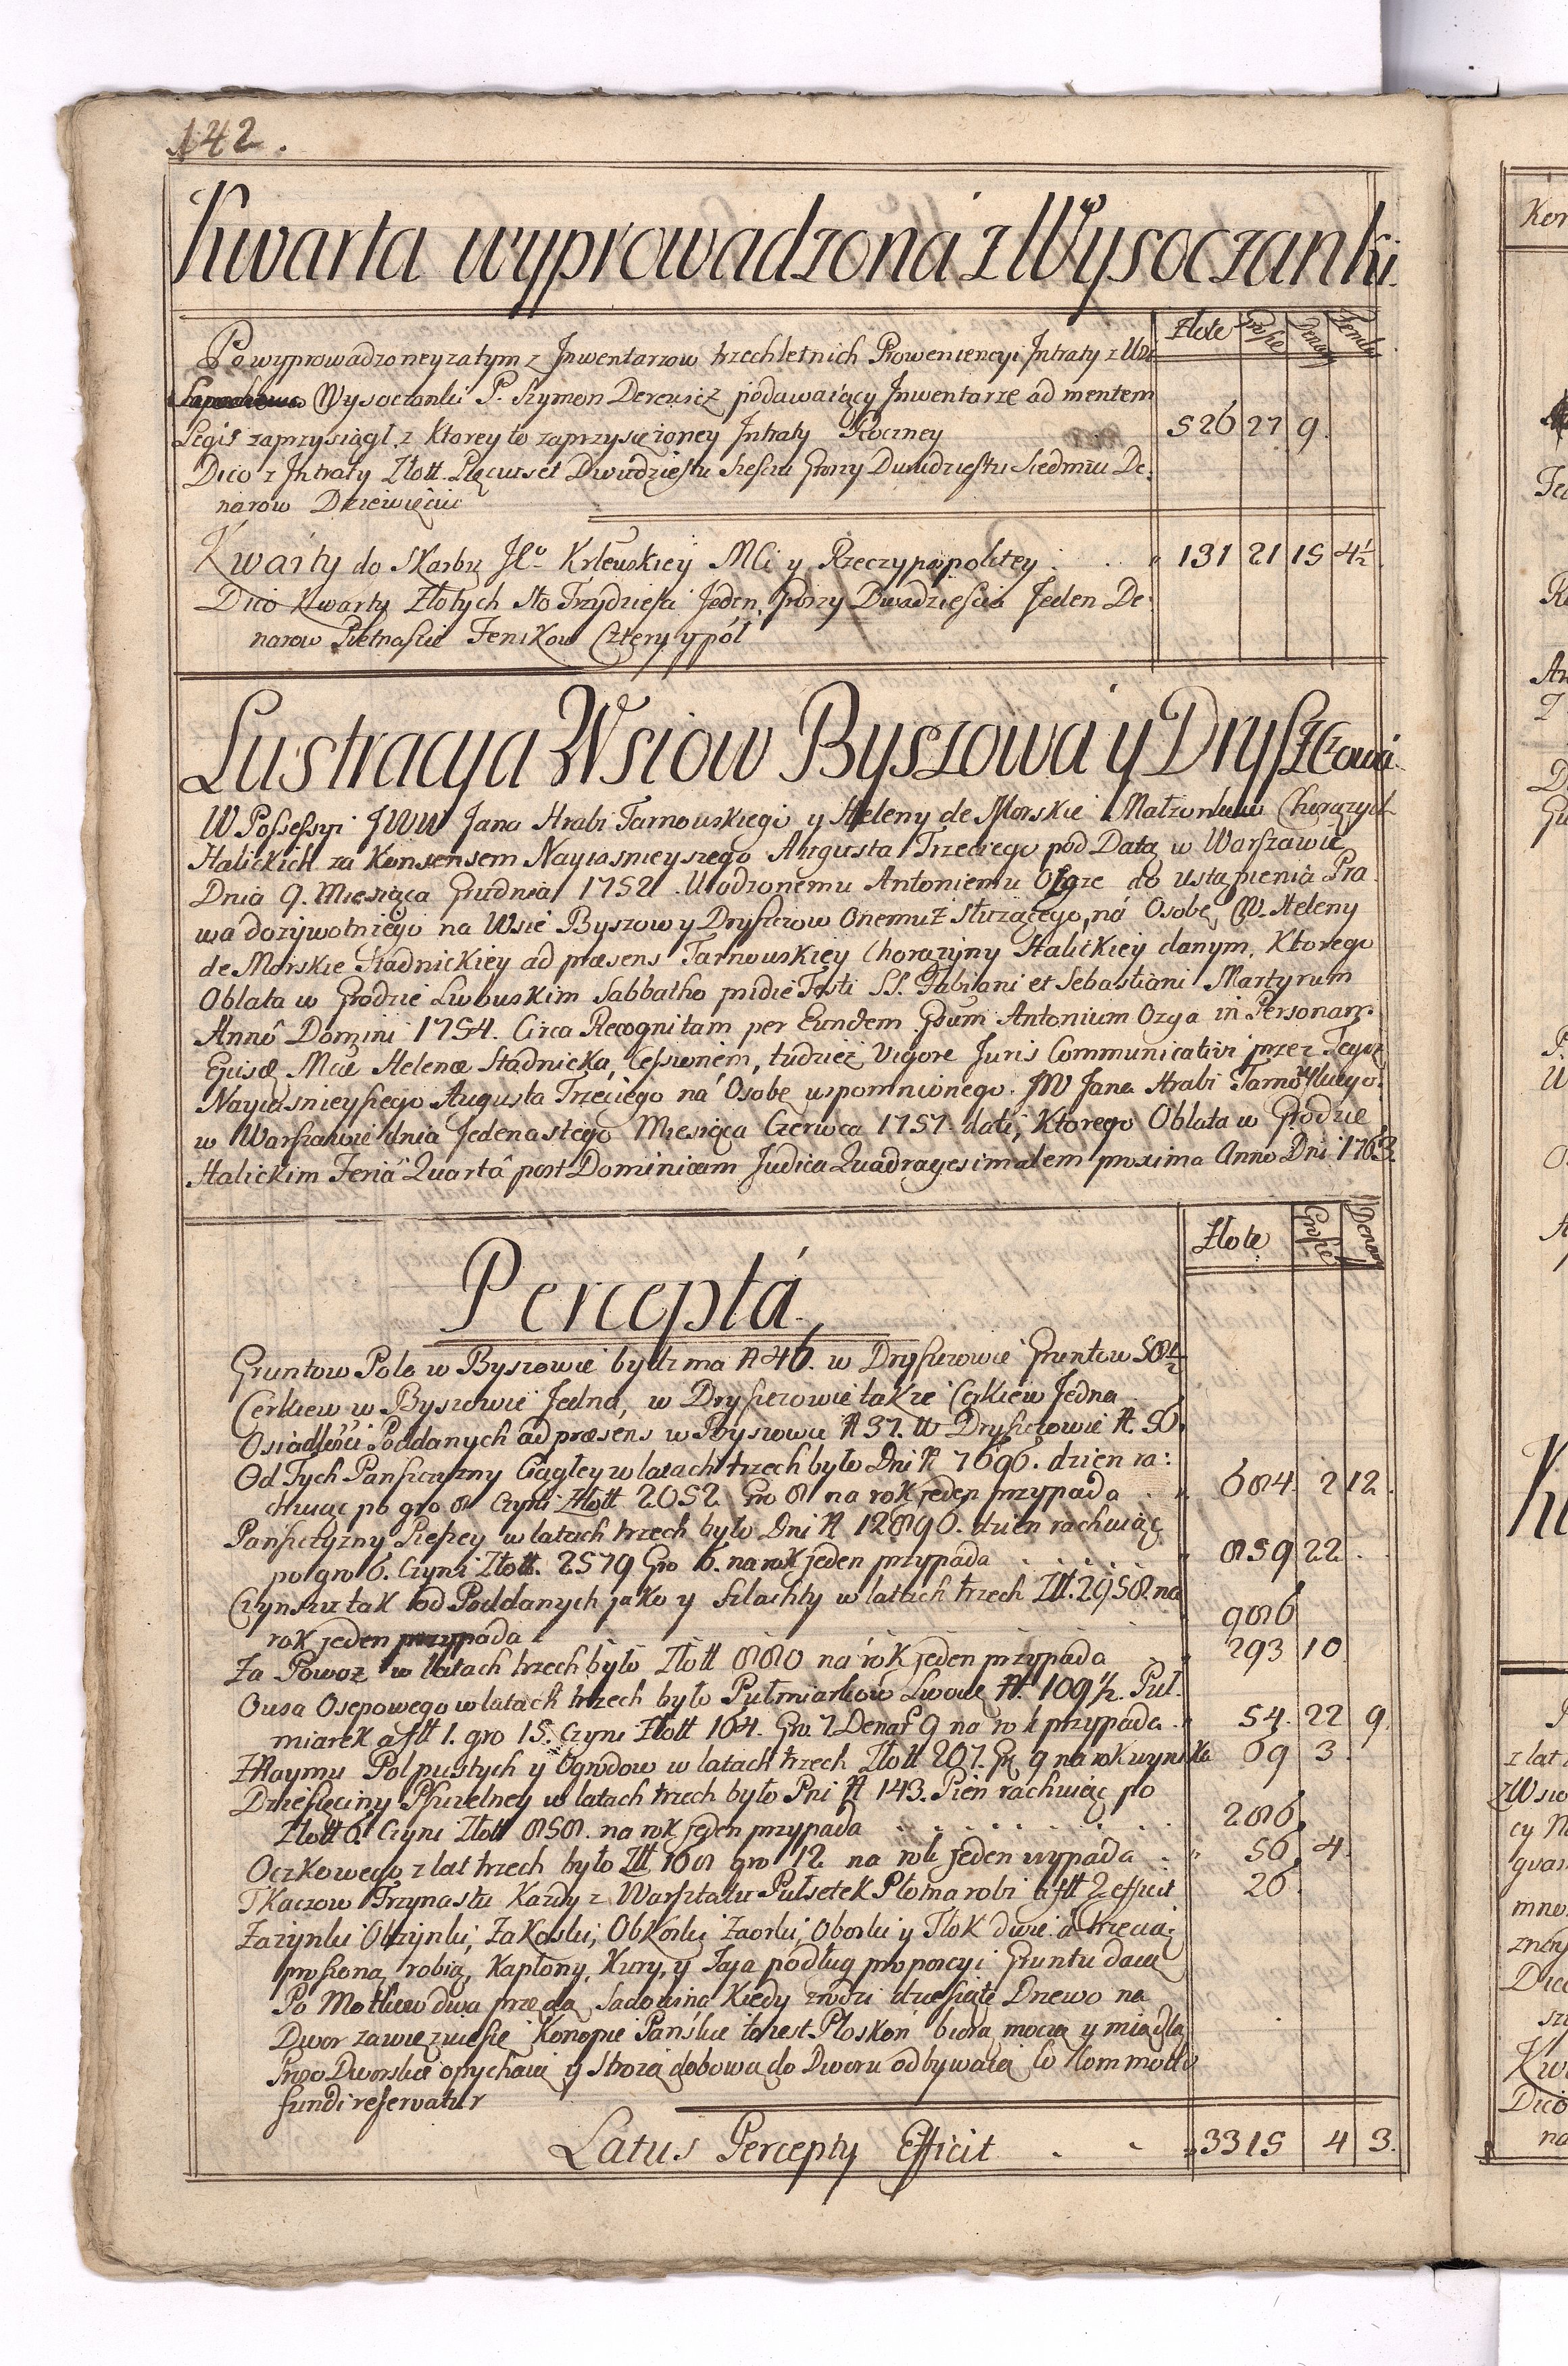 142.
Kwarta wyprowadzona z Wysoczanki.
Złote Grosze Denary Feniki
Po wyprowadzoney zatym z Inwentarzow trzechletnich Proweniencyi Intraty z Wsi
Wysoczanki P. Szymon Derewicz podawaiący Inwentarze ad mentem
Legis zaprzysiągł, z ktorey to zaprzysiężoney Intraty Roczney 526 27 9.
Dico z Intraty Złott. Pięciuset Dwudziestu Sześciu Groszy Dwudziestu Siedmiu De:
narow Dziewięciu
Kwarty do Skarbu JKo Krlewskiey MCi y Rzeczypospolitey . . " 131 21 15 4½.
Dico Kwarty Złotych Sto Trzydzieści Jeden, Groszy Dwadzieścia Jeden De:
narow Pietnaście Fenikow Cztery y puł
Lustracya Wsiow Byszowa y Dryszczowa.
W Possessyi JWW Jana Hrabi Tarnowskiego y Heleny de Morskie Małzonkow Chorązych
Halickich za Konsensem Nayiasnieyszego Augusta Trzeciego pod Datą w Warszawie
Dnia 9. Miesiąca Grudnia 1752. Urodzonemu Antoniemu Ozdze do ustąpienia Pra:
wa dozywotniego na Wsie Byszow y Dryszczow onemuż służącego, na Osobę W. Heleny
de Morskie Stadnickiey ad præsens Tarnowskiey Chorązyny Halickiey danym, Ktorego
Oblata w Grodzie Lwowskim Sabbatho pridie Festi SS. Fabiani et Sebastiani Martyrum
Anno Domini 1754. Circa Recognitam per Eundem Gsum Antonium Ozga in Personam
Ejusd. Mcæ Helenæ Stadnicka, Cessionem, tudzież vigore Juris Communicativi przez Tegoż
Nayiasnieyszego Augusta Trzeciego na Osobę wspomnionego JW Jana Hrabi Tarnowskiego
w Warszawie dnia Jedenastego Miesiąca Czerwca 1757 dati, Ktorego Oblata w Grodzie
Halickim Feria Quarta post Dominicam Judica Quadragesimalem proxima Anno Dni 1763.
Złote Grosze Denary
Percepta.
Gruntow Pola w Byszowie bydz ma N 46. w Dryszczowie Gruntow 58½
Cerkiew w Byszowie Jedna, w Dryszczowie takze Cerkiew Jedna
Osiadłości Poddanych ad præsens w Byszowie N 37. W Dryszczowie N. 56.
Od Tych Pańszczyzny Ciągłey w latach trzech było Dni N 7696. dzien ra:
chuiąc po gro 8 Czyni Złott 2052 Gro 8 na rok jeden przypada . " 684 2 12.
Pańszczyzny Pieszey w latach trzech było Dni N 12896. dzien rachuiąc
po gro 6. Czyni Złott. 2579 Gro 6. na rok jeden przypada . . . . . " 859 22 .
Czynszu tak od Poddanych jako y Szlachty w latach trzech Złł. 2958. na
rok jeden przypada 986
Za Powoz w latach trzech było Złott 880 na rok jeden przypada 293 10
Owsa Osepowego w latach trzech było Pułmiarkow Lwow N. 109½. Puł:
miarek a fłł 1. gro 15. Czyni Złott 164. Gro. 7 Denar 9 na rok przypada . " 54. 22 9.
Z Naymu Pol pustych y Ogrodow w latach trzech Złott 207. Gr. 9 na rok wynika 69 3
Dziesięciny Pszczelney w latach trzech było Pni N 143. Pień rachuiąc po
Złott 6. Czyni Złott 858. na rok jeden przypada . . . . . . . 286,
Oczkowego z lat trzech było Złł 168 gro 12 na rok jeden wypada . " 56, 4.
Tkaczow Trzynastu Kazdy z Warsztatu Pułsetek Płotna robi a fłł 2 efficit 26.
Zazynki Obzynki, Zakoski, Obkoski Zaorki, Oborki y Tłok dwie a trzecią
proszoną robią, Kapłony, Kury, y Jaja podług proporcyi Gruntu daią
Po Motkow dwa przędą Sadowina Kiedy zrodzi dziesiąte Drzewo na
Dwor zawięzuie się Konopie Pańskie to iest Płoskoń biorą moczą y miądlą
Proso Dworskie opychaią y Strożą dobową do Dworu odbywaią Co Commodo
fundi reservatur
Latus Percepty Efficit . . " 3315 4 3.